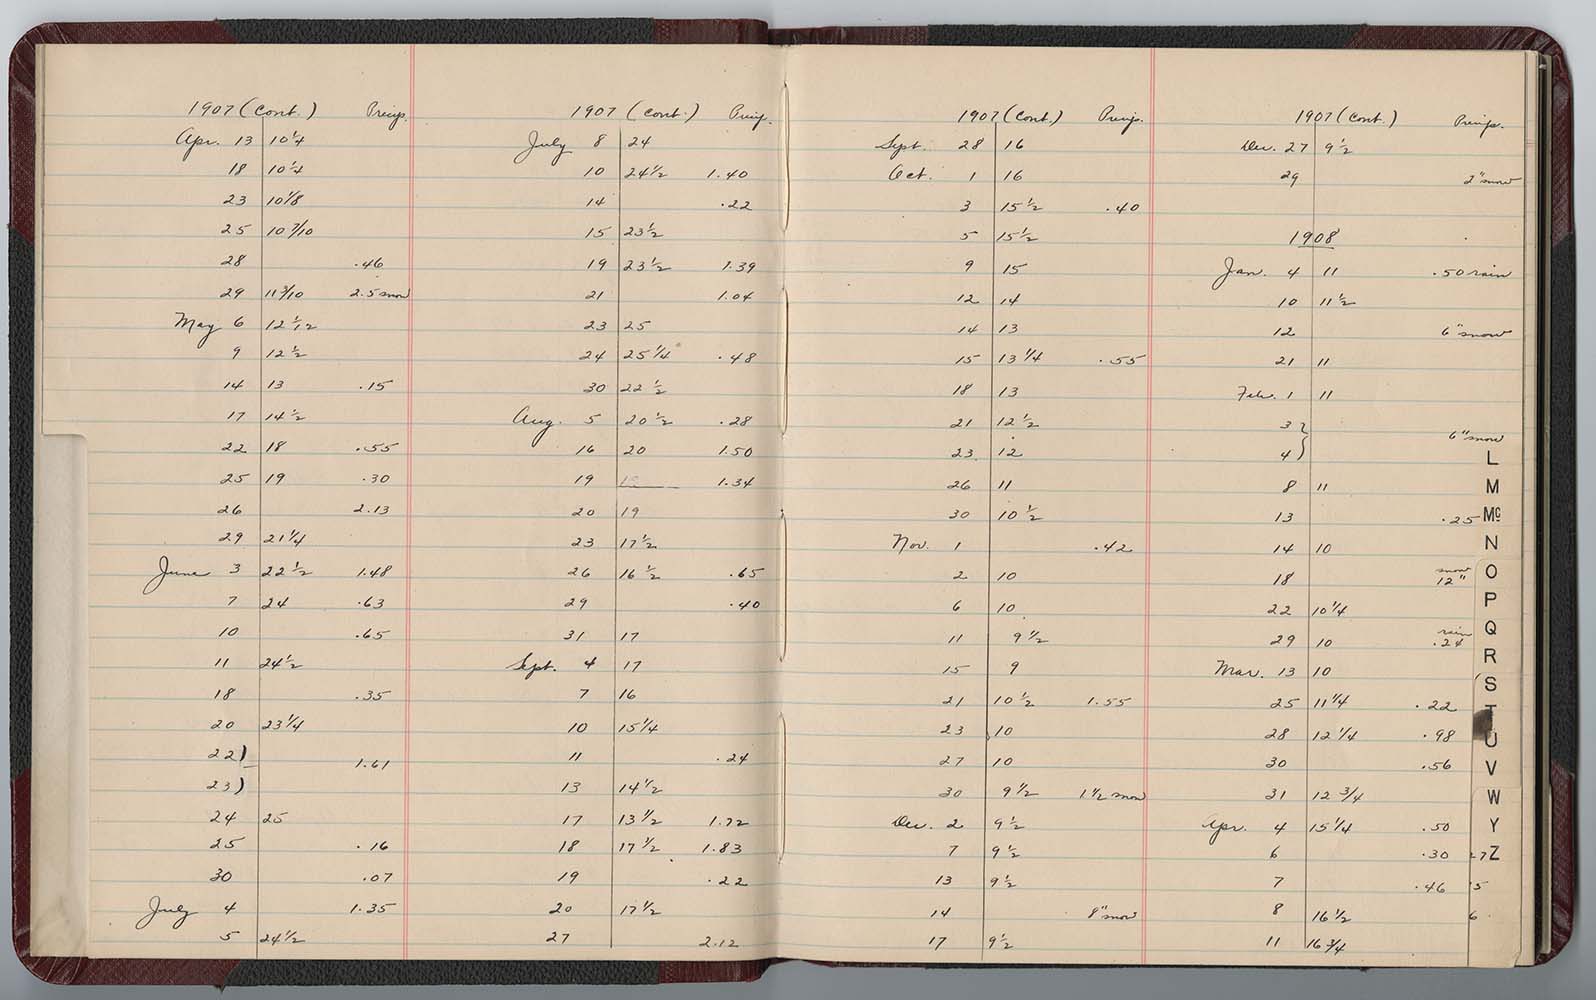 1907 (Cont.) Precip.
Apr. 13 10 1/4
18 10 1/4
23 10 1/8
25 10 7/10
28 .46
29 11 3/10 2.5 snow
May 6 12 1/12
9 12 1/2
14 13 .15
17 14 1/2
22 18 .55
25 19 .30
26 2.13
29 21 1/4
June 3 22 1/2 1.48
7 24 .63
10 .65
11 24 1/2
18 .35
20 23 1/4
22)
1.61
23)
24 25
25 .16
30 .07
July 4 1.35
5 24 1/2
1907 (Cont.) Precip.
July 8 24
10 24 1/2 1.40
14 .22
15 23 1/2
19 23 1/2 1.39
21 1.04
23 25
24 25 1/4 .48
30 22 1/2
Aug. 5 20 1/2 .28
16 20 1.50
19 1.34
20 19
23 17 1/2
26 16 1/2 .65
29 .40
31 17
Sept. 4 17
7 16
10 15 1/4
11 .24
13 14 1/2
17 13 1/2 1.72
18 17 1/2 1.83
19 .22
20 17 1/2
27 2.12
1907 (Cont.) Precip.
Sept. 28 16
Oct. 1 16
3 15 1/2 .40
5 15 1/2
9 15
12 14
14 13
15 13 1/4 .55
18 13
21 12 1/2
23 12
26 11
30 10 1/2
Nov. 1 .42
2 10
6 10
11 9 1/2
15 9
21 10 1/2 1.55
23 10
27 10
30 9 1/2 1 1/2 snow
Dec. 2 9 1/2
7 9 1/2
13 9 1/2
14 8" snow
17 9 1/2
1907 (Cont.) Precip.
Dec. 27 9 1/2
29 2" snow
1908
Jan. 4 11 .50 rain
10 11 1/2
12 6" snow
21 11
Feb. 1 11
3}
6" snow
4}
8 11
13 .25
14 10
18 snow 12"
22 10 1/4
29 10 rain .24
Mar. 13 10
25 11 1/4 .22
28 12 1/4 .98
30 .56
31 12 3/4
Apr. 4 15 1/4 .50
6 .30
7 .46
8 16 1/2
11 16 3/4
L
M
Mc
N
O
P
Q
R
S
T
U
V
W
Y
27 Z
5
6